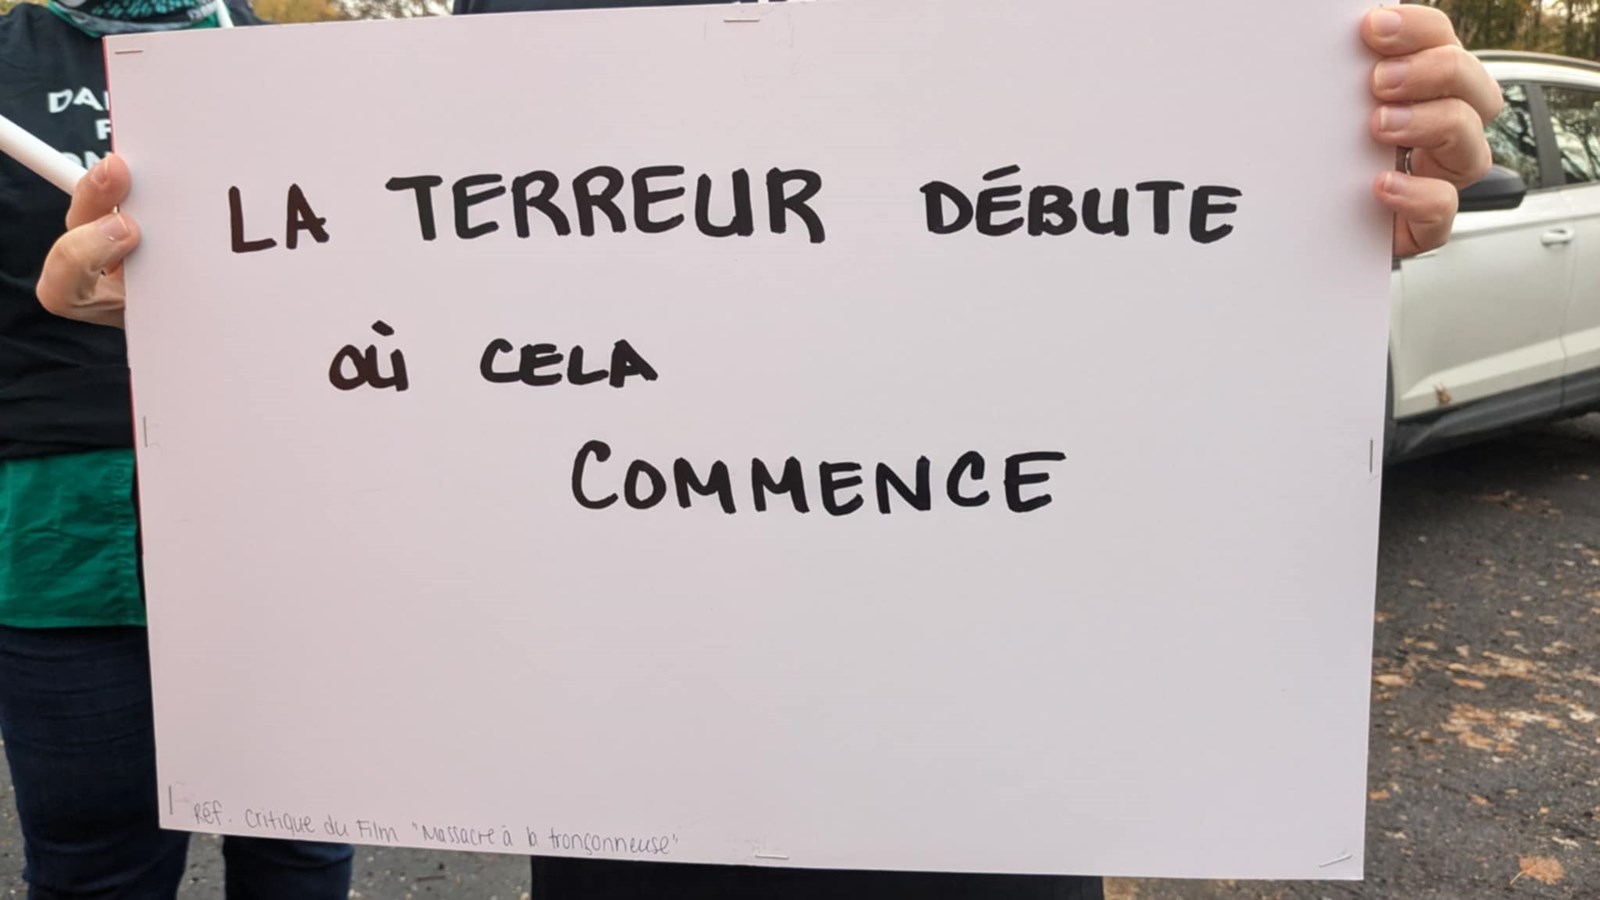 LA TERREUR DÉBUTE
OÙ CELA
COMMENCE
Réf. Critique du Film "Massacre à la tronçonneuse"